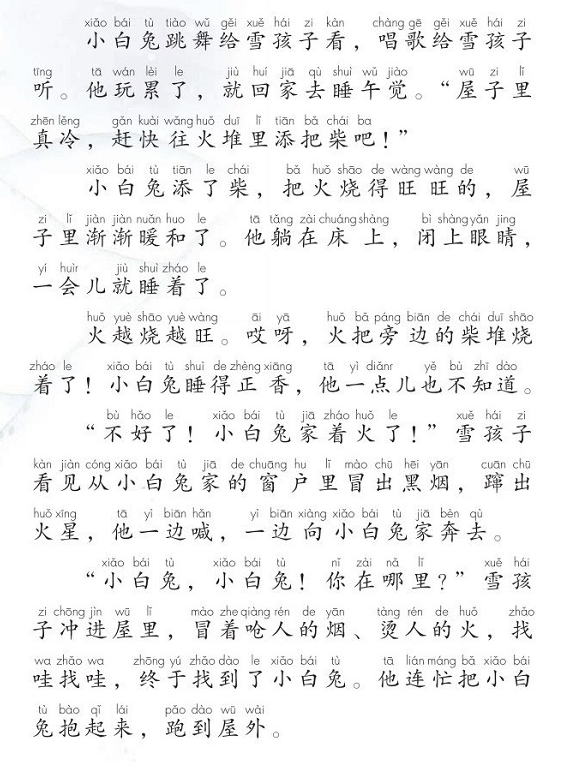 xiǎo bái tù tiào wǔ gěi xuě hái zi kàn chàng gē gěi xuě hái zi
小白兔跳舞给雪孩子看，唱歌给雪孩子
tīng tā wán lèi le jiù huí jiā qù shuì wǔ jiào wū zi lǐ
听。他玩累了，就回家去睡午觉。“屋子里
zhēn lěng gǎn kuài wǎng huǒ duī lǐ tiān bǎ chái ba
真冷，赶快往火堆里添把柴吧！”
xiǎo bái tù tiān le chái bǎ huǒ shāo de wàng wàng de wū
小白兔添了柴，把火烧得旺旺的，屋
zi lǐ jiàn jiàn nuǎn huo le tā tǎng zài chuáng shàng bì shàng yǎn jing
子里渐渐暖和了。他躺在床上，闭上眼睛，
yí huìr jiù shuì zháo le
一会儿就睡着了。
huǒ yuè shāo yuè wàng āi yā huǒ bǎ páng biān de chái duī shāo
火越烧越旺。哎呀，火把旁边的柴堆烧
zháo le xiǎo bái tù shuì de zhèng xiāng tā yì diǎnr yě bù zhī dào
着了！小白兔睡得正香，他一点儿也不知道。
bù hǎo le xiǎo bái tù jiā zháo huǒ le xuě hái zi
“不好了！小白兔家着火了！”雪孩子
kàn jiàn cóng xiǎo bái tù jiā de chuāng hu lǐ mào chū hēi yān cuān chū
看见从小白兔家的窗户里冒出黑烟，蹿出
huǒ xīng tā yì biān hǎn yì biān xiàng xiǎo bái tù jiā bèn qù
火星，他一边喊，一边向小白兔家奔去。
xiǎo bái tù xiǎo bái tù nǐ zài nǎ lǐ xuě hái
“小白兔，小白兔！你在哪里？”雪孩
zi chōng jìn wū lǐ mào zhe qiàng rén de yān tàng rén de huǒ zhǎo
子冲进屋里，冒着呛人的烟、烫人的火，找
wa zhǎo wa zhōng yú zhǎo dào le xiǎo bái tù tā lián máng bǎ xiǎo bái
哇找哇，终于找到了小白兔。他连忙把小白
tù bào qǐ lái pǎo dào wū wài
兔抱起来，跑到屋外。